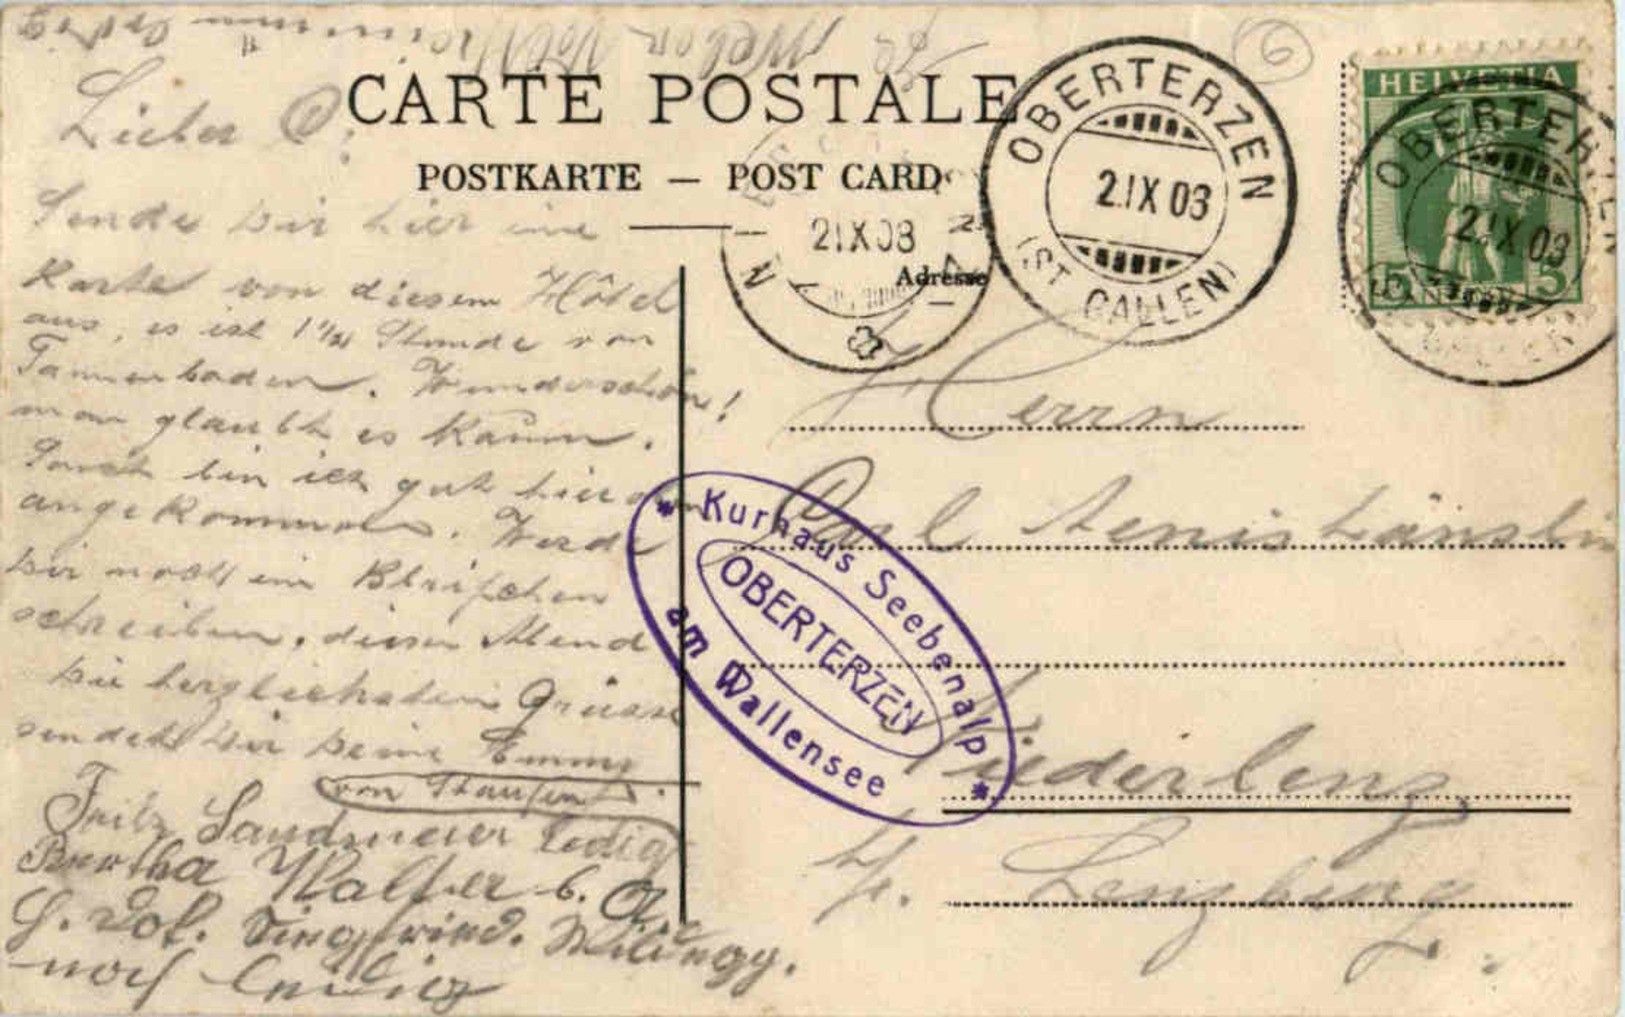 CARTE POSTALE
POSTKARTE — POST CARD
Adresse
OBERTERZEN
2.IX 08
(ST GALLEN)
2.IX 08
HELVETIA
5 5
OBERTERZEN
2.IX 08
6
Lieber O:
Sende dir hier eine
Karte von diesem Hôtel
aus, es ist 1½ Stunde von
Tannenboden. Wunderschön!
man glaubt es kaum.
Sonst bin ich gut hier
angekommen. Werde
dir noch ein
schreiben, diesen Abend
Die herzlichsten Grüsse
sendet dir deine Emmy
von Staufen.
Fritz Sandmeier ledig
Bertha Walter
noch ledig
Herrn
Carl
Niederlenz
b/. Lenzburg
* Kurhaus Seebenalp *
OBERTERZEN
am Wallensee